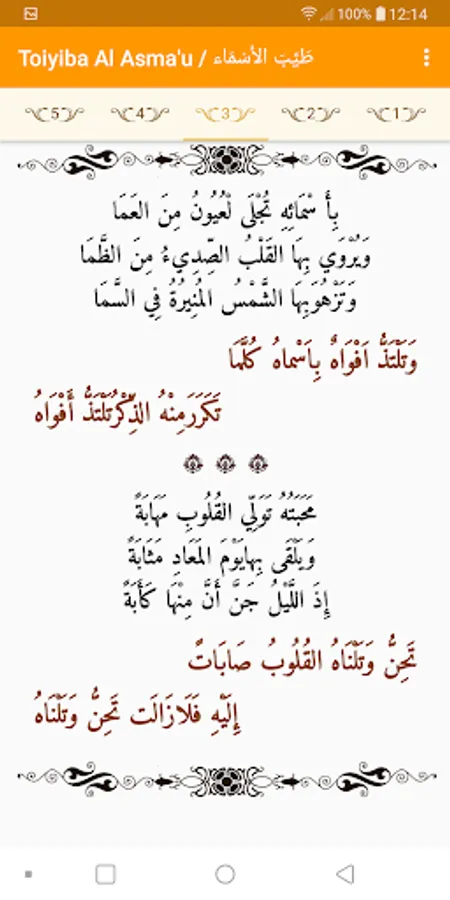 100% 12:14
Toiyiba Al Asma'u / طَيِّبَ الأسْمَاء
5 4 3 2 1
بِأَ سْمَائِهِ تُجْلَى لْعُيُونُ مِنَ العَمَا
وَيُرْوَي بِهَا القَلْبُ الصِّدِيءُ مِنَ الظَّمَا
وَتَزْهُوبِهَا الشَّمْسُ المُنِيرَةُ فِي السَّمَا
وَتَلْتَذُّ اَفْوَاهٌ بِاَسْماهُ كُلَّمَا
تَكَرَرَمِنْهُ الذِّكْرُتَلْتَذُّ أَفْوَاهُ
مَحَبَتُهُ تَوَلِّي القُلُوبِ مَهَابَةً
وَيَلْقَى بِهايَوْمَ المَعَادِ مَثَابَةً
إِذَ اللَّيْلُ جَنَّ أَنَّ مِنْهَا كَأَبَةً
تَحِنُّ وَتَلْنَاهُ القُلُوبُ صَابَاتٌ
إِلَيْهِ فَلَازَالَت تَحِنُّ وَتَلْنَاهُ